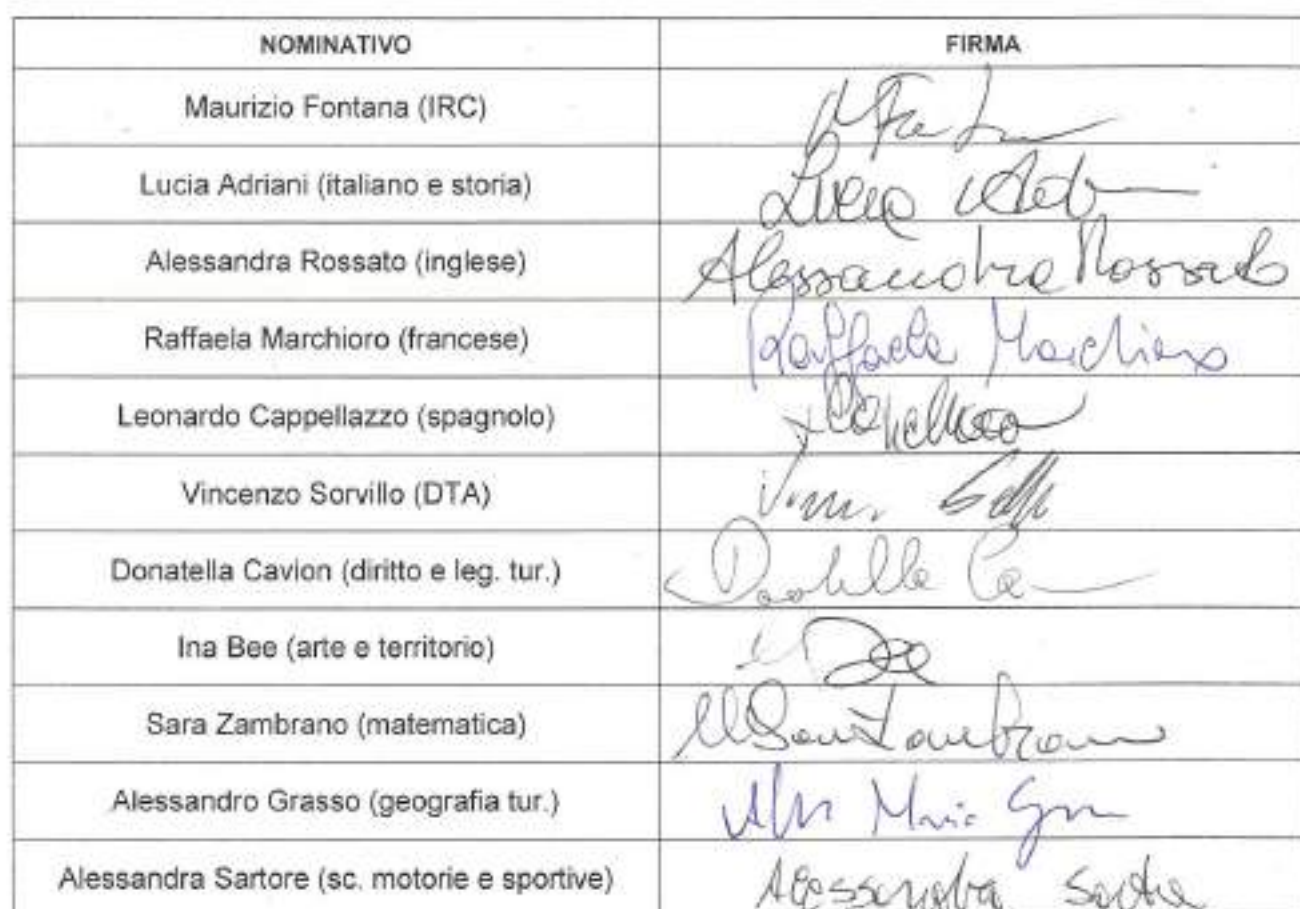 NOMINATIVO FIRMA
Maurizio Fontana (IRC)
Lucia Adriani (italiano e storia) Lucia
Alessandra Rossato (inglese) Alessandra Rossato
Raffaela Marchioro (francese) Raffaela Marchioro
Leonardo Cappellazzo (spagnolo)
Vincenzo Sorvillo (DTA)
Donatella Cavion (diritto e leg. tur.) Donatella
Ina Bee (arte e territorio) Bee
Sara Zambrano (matematica) Zambrano
Alessandro Grasso (geografia tur.) Maria
Alessandra Sartore (sc. motorie e sportive) Alessandra Sartore